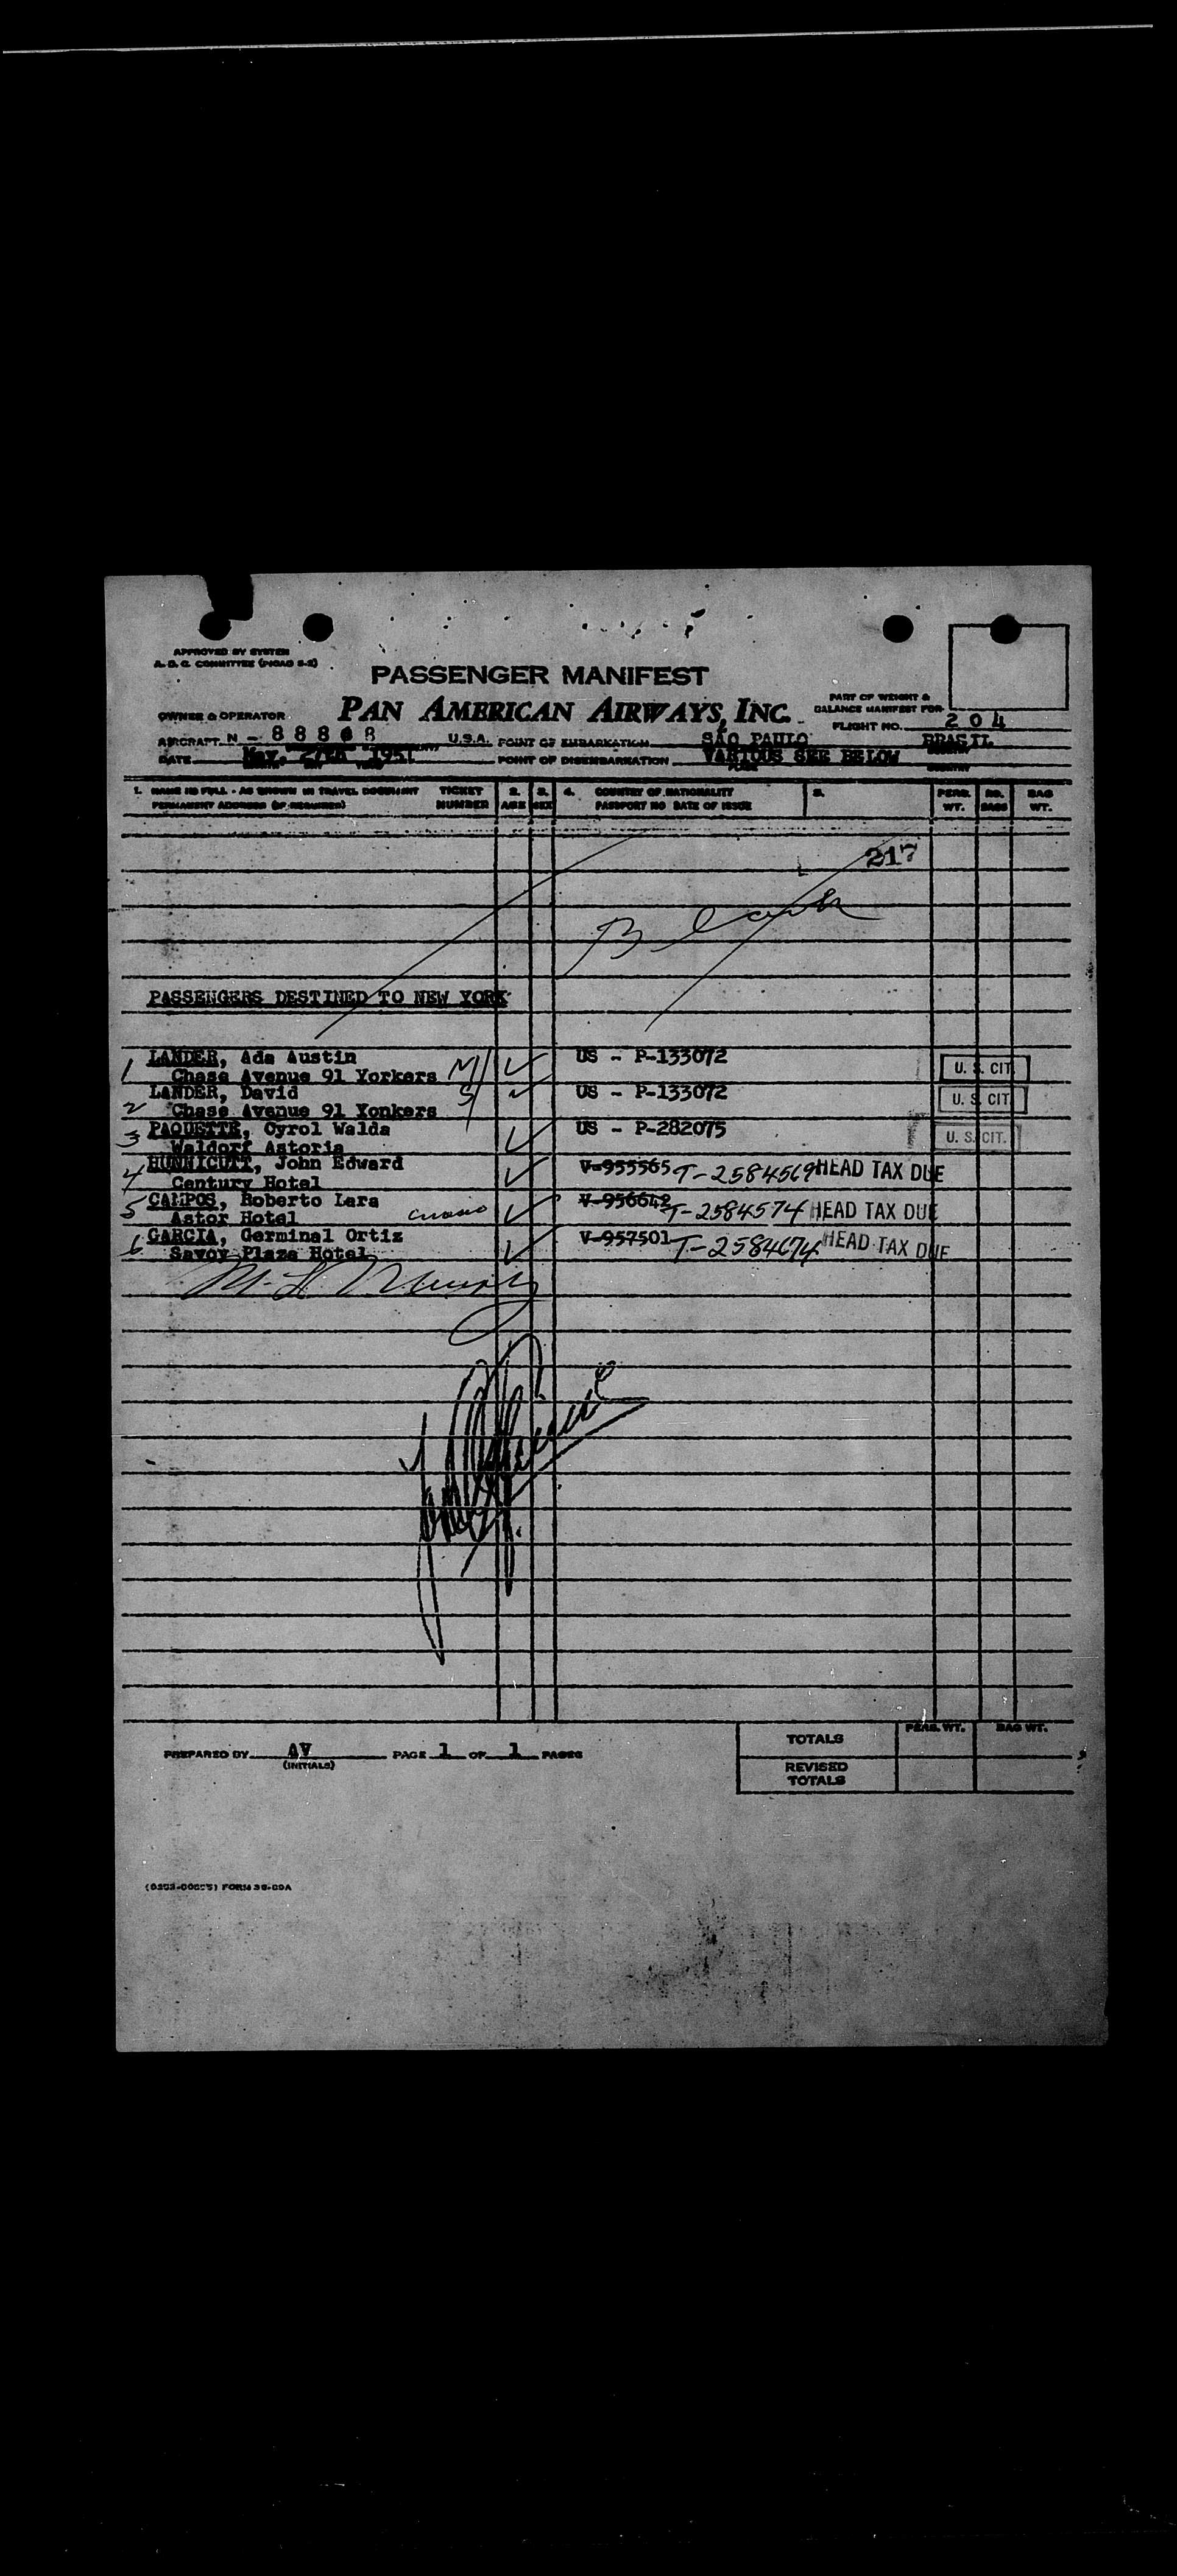 APPROVED BY SYSTEM
A. D. C. COMMITTEE
PASSENGER MANIFEST
PAN AMERICAN AIRWAYS, INC.
PART OF WEIGHT &
BALANCE MANIFEST FOR
OWNER & OPERATOR
FLIGHT NO. 204
AIRCRAFT N - 888 8 U.S.A. POINT OF EMBARKATION SÃO PAULO BRASIL
DATE 1951 POINT OF DISEMBARKATION VARIOUS SEE BELOW
PLACE COUNTRY
1. NAME IN FULL - AS SHOWN IN TRAVEL DOCUMENT TICKET 2. 3. 4. COUNTRY OF NATIONALITY 5. PERS. NO. BAG
PERMANENT ADDRESS (IF REQUIRED) NUMBER AGE SEX PASSPORT NO DATE OF ISSUE WT. BAGS WT.
217
PASSENGERS DESTINED TO NEW YORK
1 LANDER, Ada Austin M US - P-133072 U. S. CIT.
Chase Avenue 91 Yorkers
2 LANDER, David S US - P-133072 U. S. CIT.
Chase Avenue 91 Yonkers
3 PAQUETTE, Cyrol Walda US - P-282075 U. S. CIT.
Waldorf Astoria
4 HUNNICUTT, John Edward V-955565 T-2584569 HEAD TAX DUE
Century Hotel
5 CAMPOS, Roberto Lara V-956642 T-2584574 HEAD TAX DUE
Astor Hotel
6 GARCIA, Germinal Ortiz V-957501 T-2584674 HEAD TAX DUE
Savoy Plaza Hotel
PREPARED BY AV PAGE 1 OF 1 PAGES
(INITIALS)
PERS. WT. BAG WT.
TOTALS
REVISED
TOTALS